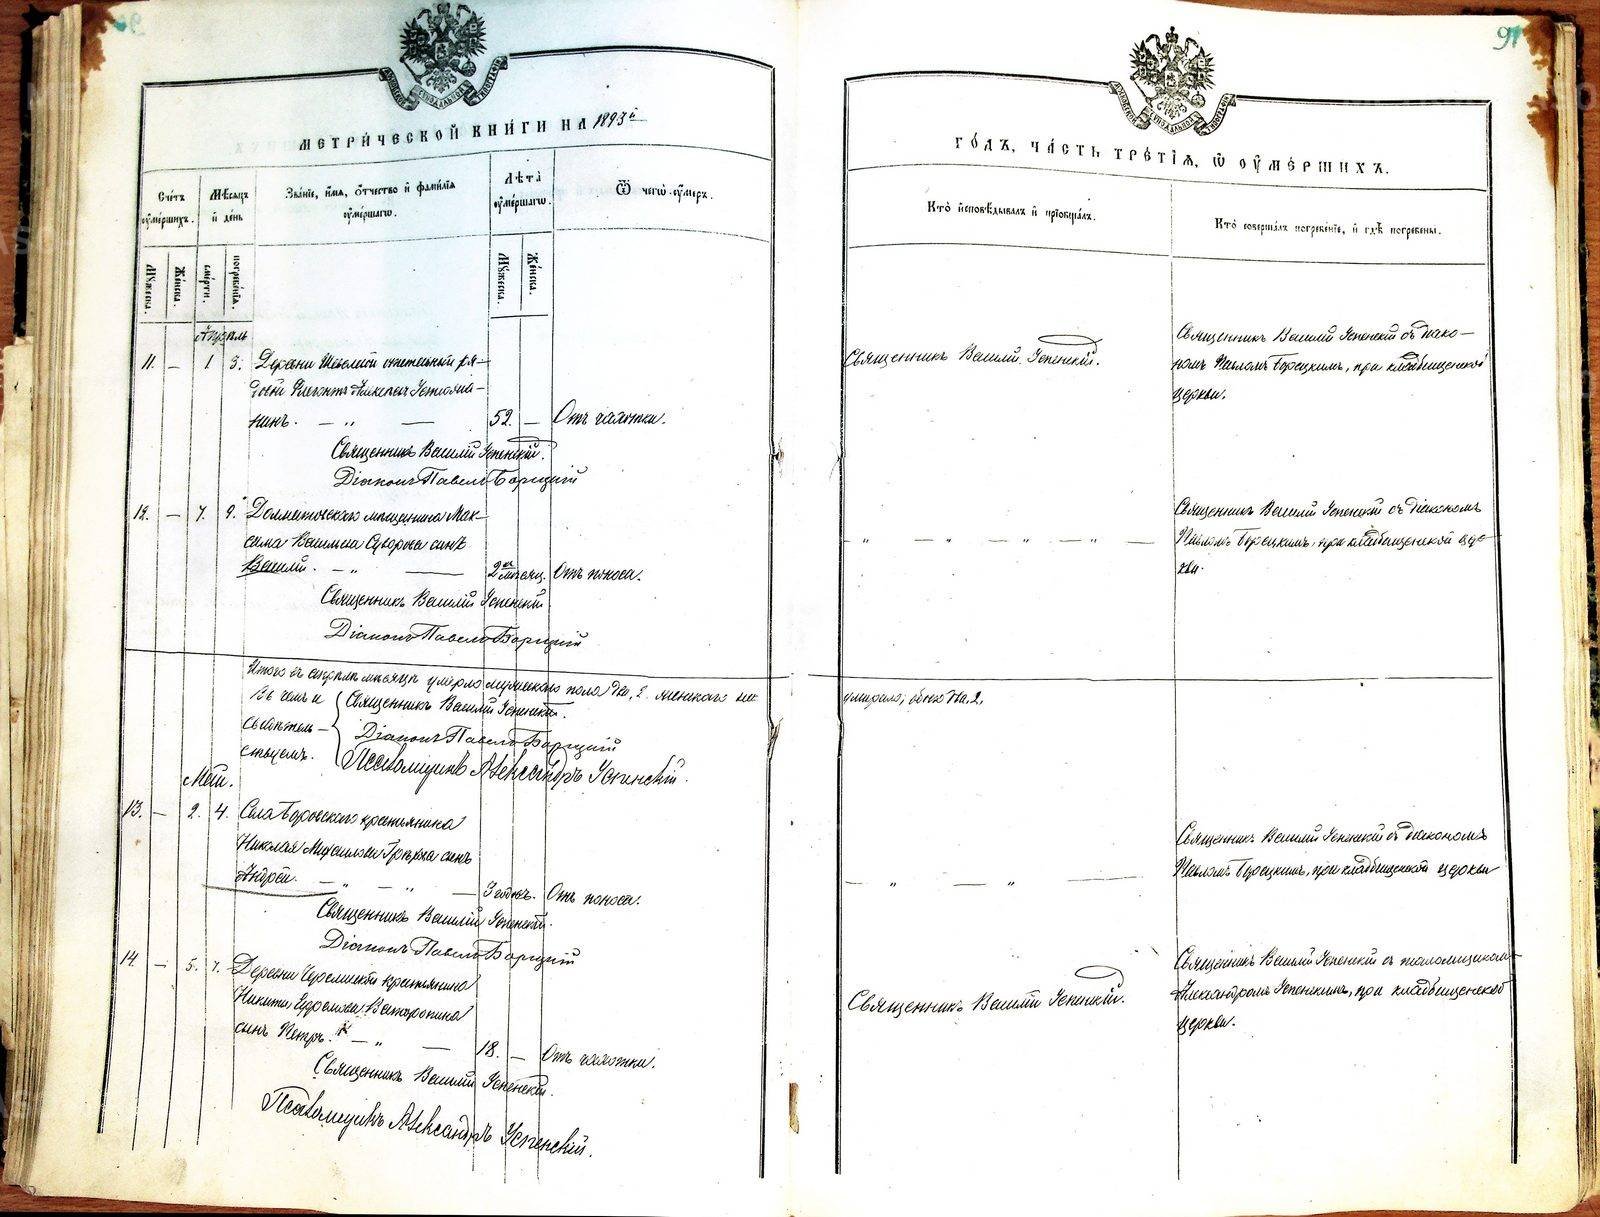 91
МОСКОВСКОЙ СѴНОДАЛЬНОЙ ТИПОГРАФІИ
МЕТРИЧЕСКОЙ КНИГИ НА 1893й
Счетъ оумершихъ.
Мѣсяцъ и день
Званіе, имя, отчество и фамилія оумершагω.
Лѣта оумершагω.
Ѿ чегω оумеръ.
Мужеска.
Женска.
смерти.
погребенія.
Мужеска.
Женска.
Апрѣль
11. — 1 3. Деревни
52. — Отъ чахотки.
Священникъ Василій Успенскій.
Діаконъ Павелъ Борецкій
12. — 7. 9. Долматовскаго мѣщанина Мак-
сима Васильева Суворова сынъ
Василій. — „ — 2хъ мѣсяц. Отъ поноса.
Священникъ Василій Успенскій
Діаконъ Павелъ Борецкій
Итого въ апрѣлѣ мѣсяцѣ умерло мужескаго пола два, 2. женскаго не
Въ чемъ и Священникъ Василій Успенскій.
свидѣтель- Діаконъ Павелъ Борецкій
ствуемъ. Псаломщикъ Александръ Успенскій.
Май.
13. — 2. 4. Села Боровскаго крестьянина
Николая Михаилова сынъ
Андрей. — „ — „ — 3 годовъ. Отъ поноса.
Священникъ Василій Успенскій.
Діаконъ Павелъ Борецкій
14. — 5. 7. Деревни крестьянина
Никиты Ефремова
сынъ Петръ. — „ — 18. — Отъ чахотки.
Священникъ Василій Успенскій.
Псаломщикъ Александръ Успенскій.
МОСКОВСКОЙ СѴНОДАЛЬНОЙ ТИПОГРАФІИ
ГОДЪ, ЧАСТЬ ТРЕТІЯ, Ѿ ОУМЕРШИХЪ.
Кто исповѣдывалъ и пріобщалъ.
Кто совершалъ погребеніе, и гдѣ погребены.
Священникъ Василій Успенскій.
Священникъ Василій Успенскій съ діако-
номъ Павломъ Борецкимъ, при кладбищенской
церкви.
— „ — „ — „ — „ —
Священникъ Василій Успенскій съ діакономъ
Павломъ Борецкимъ, при кладбищенской цер-
кви.
умирало, обоего па. 2.
— „ — „ —
Священникъ Василій Успенскій съ діакономъ
Павломъ Борецкимъ, при кладбищенской церкви
Священникъ Василій Успенскій.
Священникъ Василій Успенскій съ псаломщикомъ
Александромъ Успенскимъ, при кладбищенской
церкви.